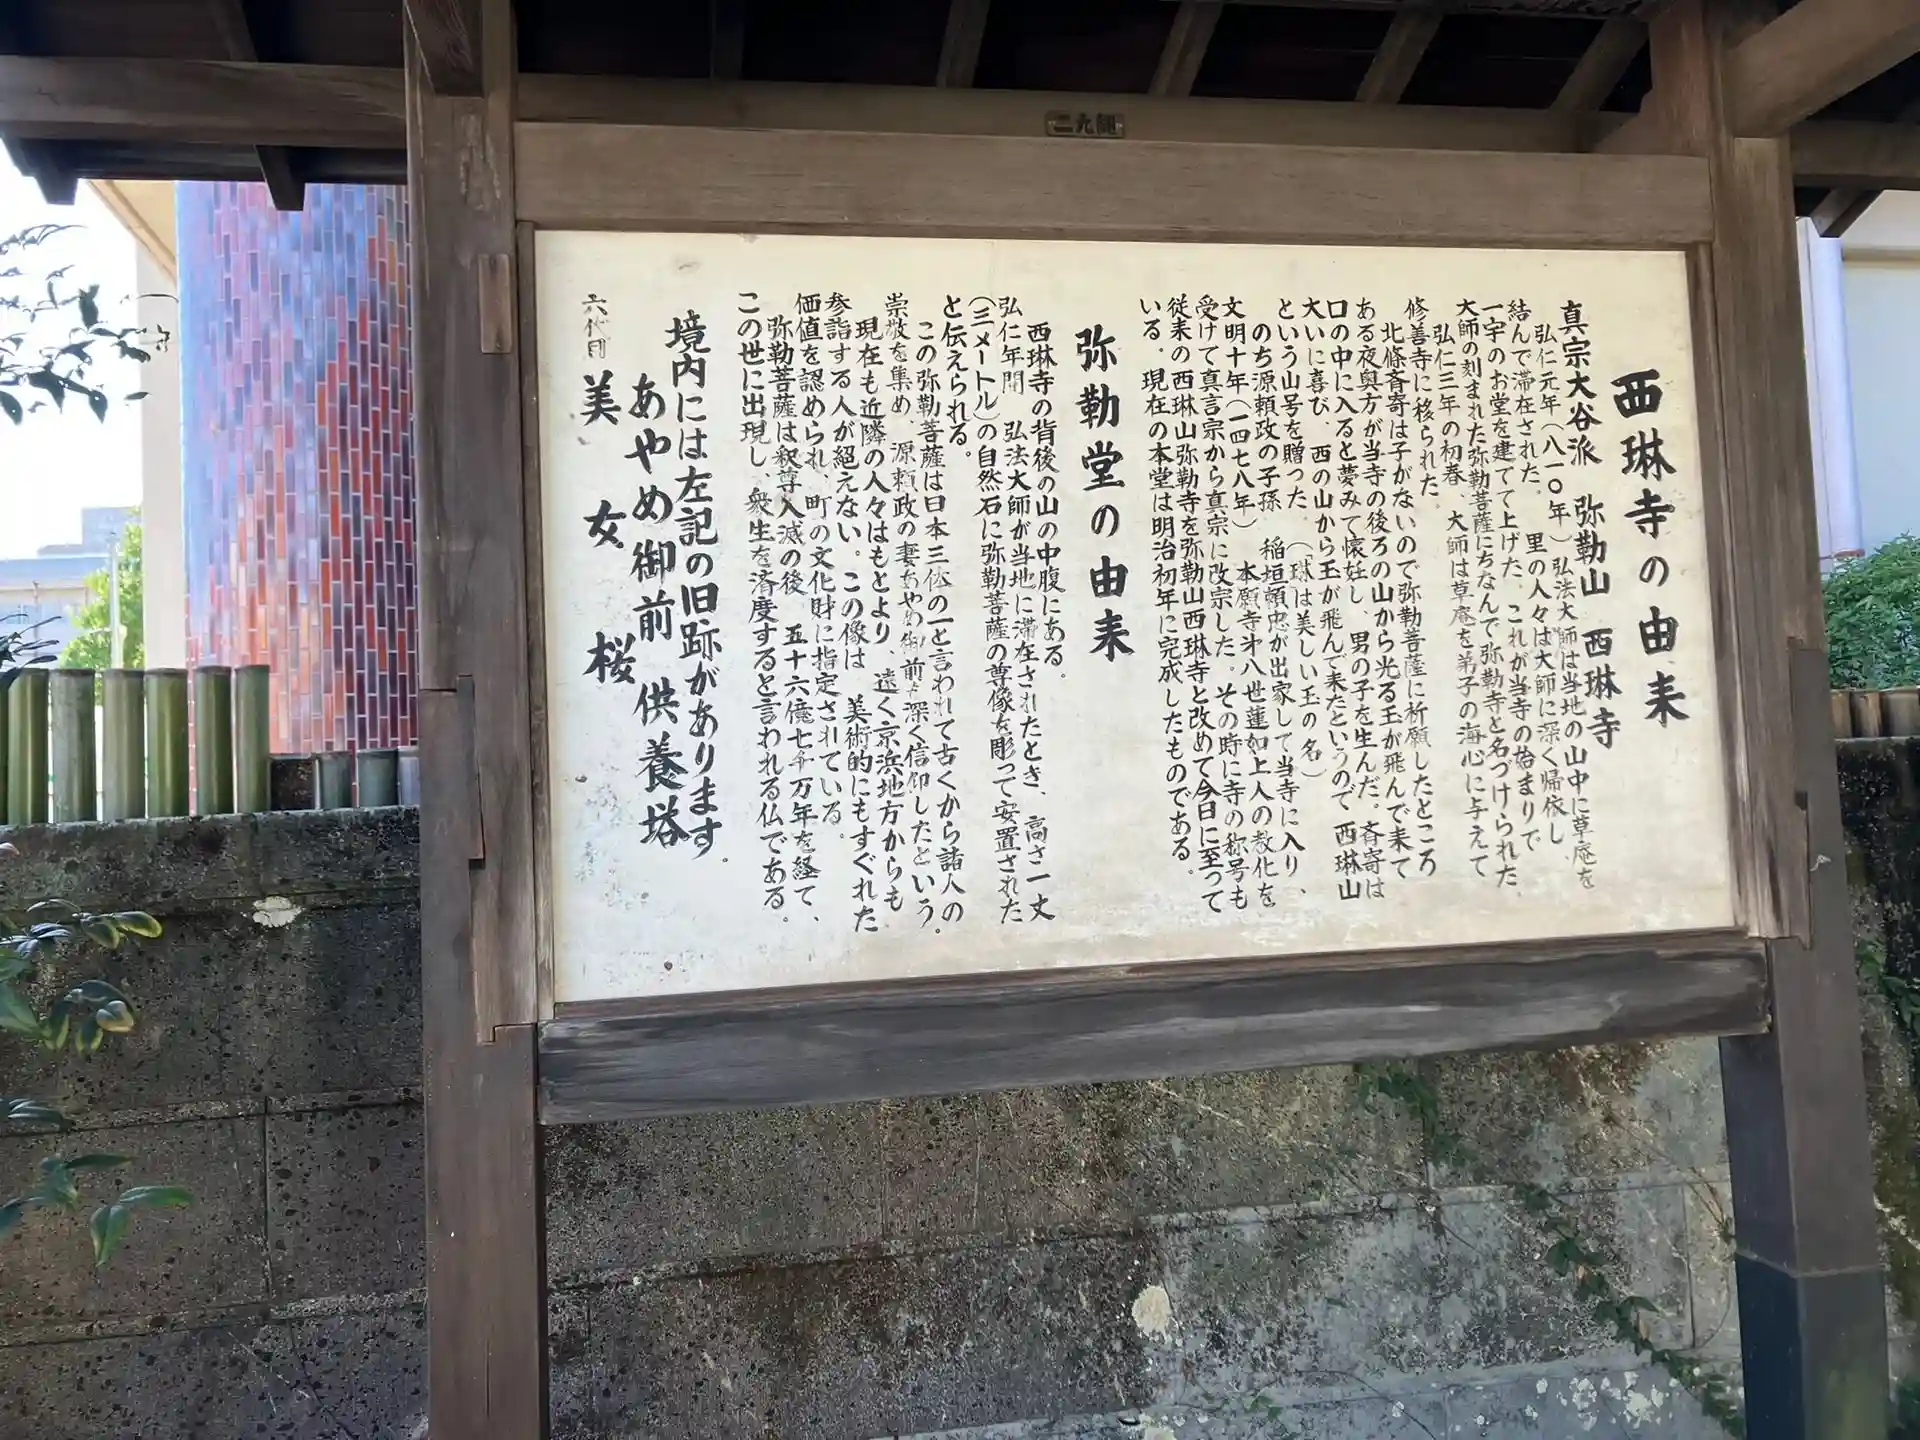 二九繩
西琳寺の由来
真宗大谷派 弥勒山 西琳寺
弘仁元年(八一〇年)弘法大師は当地の山中に草庵を
結んで滞在された。里の人々は大師に深く帰依し
一宇のお堂を建てて上げた。これが当寺の始まりで
大師の刻まれた弥勒菩薩にちなんで弥勒寺と名づけられた。
弘仁三年の初春、大師は草庵を弟子の海心に与えて
修善寺に移られた。
北條斉寄は子がないので弥勒菩薩に祈願したところ
ある夜奥方が当寺の後ろの山から光る玉が飛んで来て
口の中に入ると夢みて懐妊し、男の子を生んだ。斉寄は
大いに喜び、西の山から玉が飛んで来たというので西琳山
という山号を贈った。(琳は美しい玉の名)
のち源頼政の子孫 稲垣頼忠が出家して当寺に入り、
文明十年(一四七八年) 本願寺第八世蓮如上人の教化を
受けて真言宗から真宗に改宗した。その時に寺の称号も
従来の西琳山弥勒寺を弥勒山西琳寺と改めて今日に至って
いる。現在の本堂は明治初年に完成したものである。
弥勒堂の由来
西琳寺の背後の山の中腹にある。
弘仁年間 弘法大師が当地に滞在されたとき、高さ一丈
(三メートル)の自然石に弥勒菩薩の尊像を彫って安置された
と伝えられる。
この弥勒菩薩は日本三体の一と言われて古くから諸人の
崇敬を集め、源頼政の妻あやめ御前も深く信仰したという。
現在も近隣の人々はもとより、遠く京浜地方からも
参詣する人が絶えない。この像は 美術的にもすぐれた
価値を認められ、町の文化財に指定されている。
弥勒菩薩は釈尊入滅の後、五十六億七千万年を経て、
この世に出現し、衆生を済度すると言われる仏である。
境内には左記の旧跡があります。
あやめ御前 供養塔
六代目 美女桜